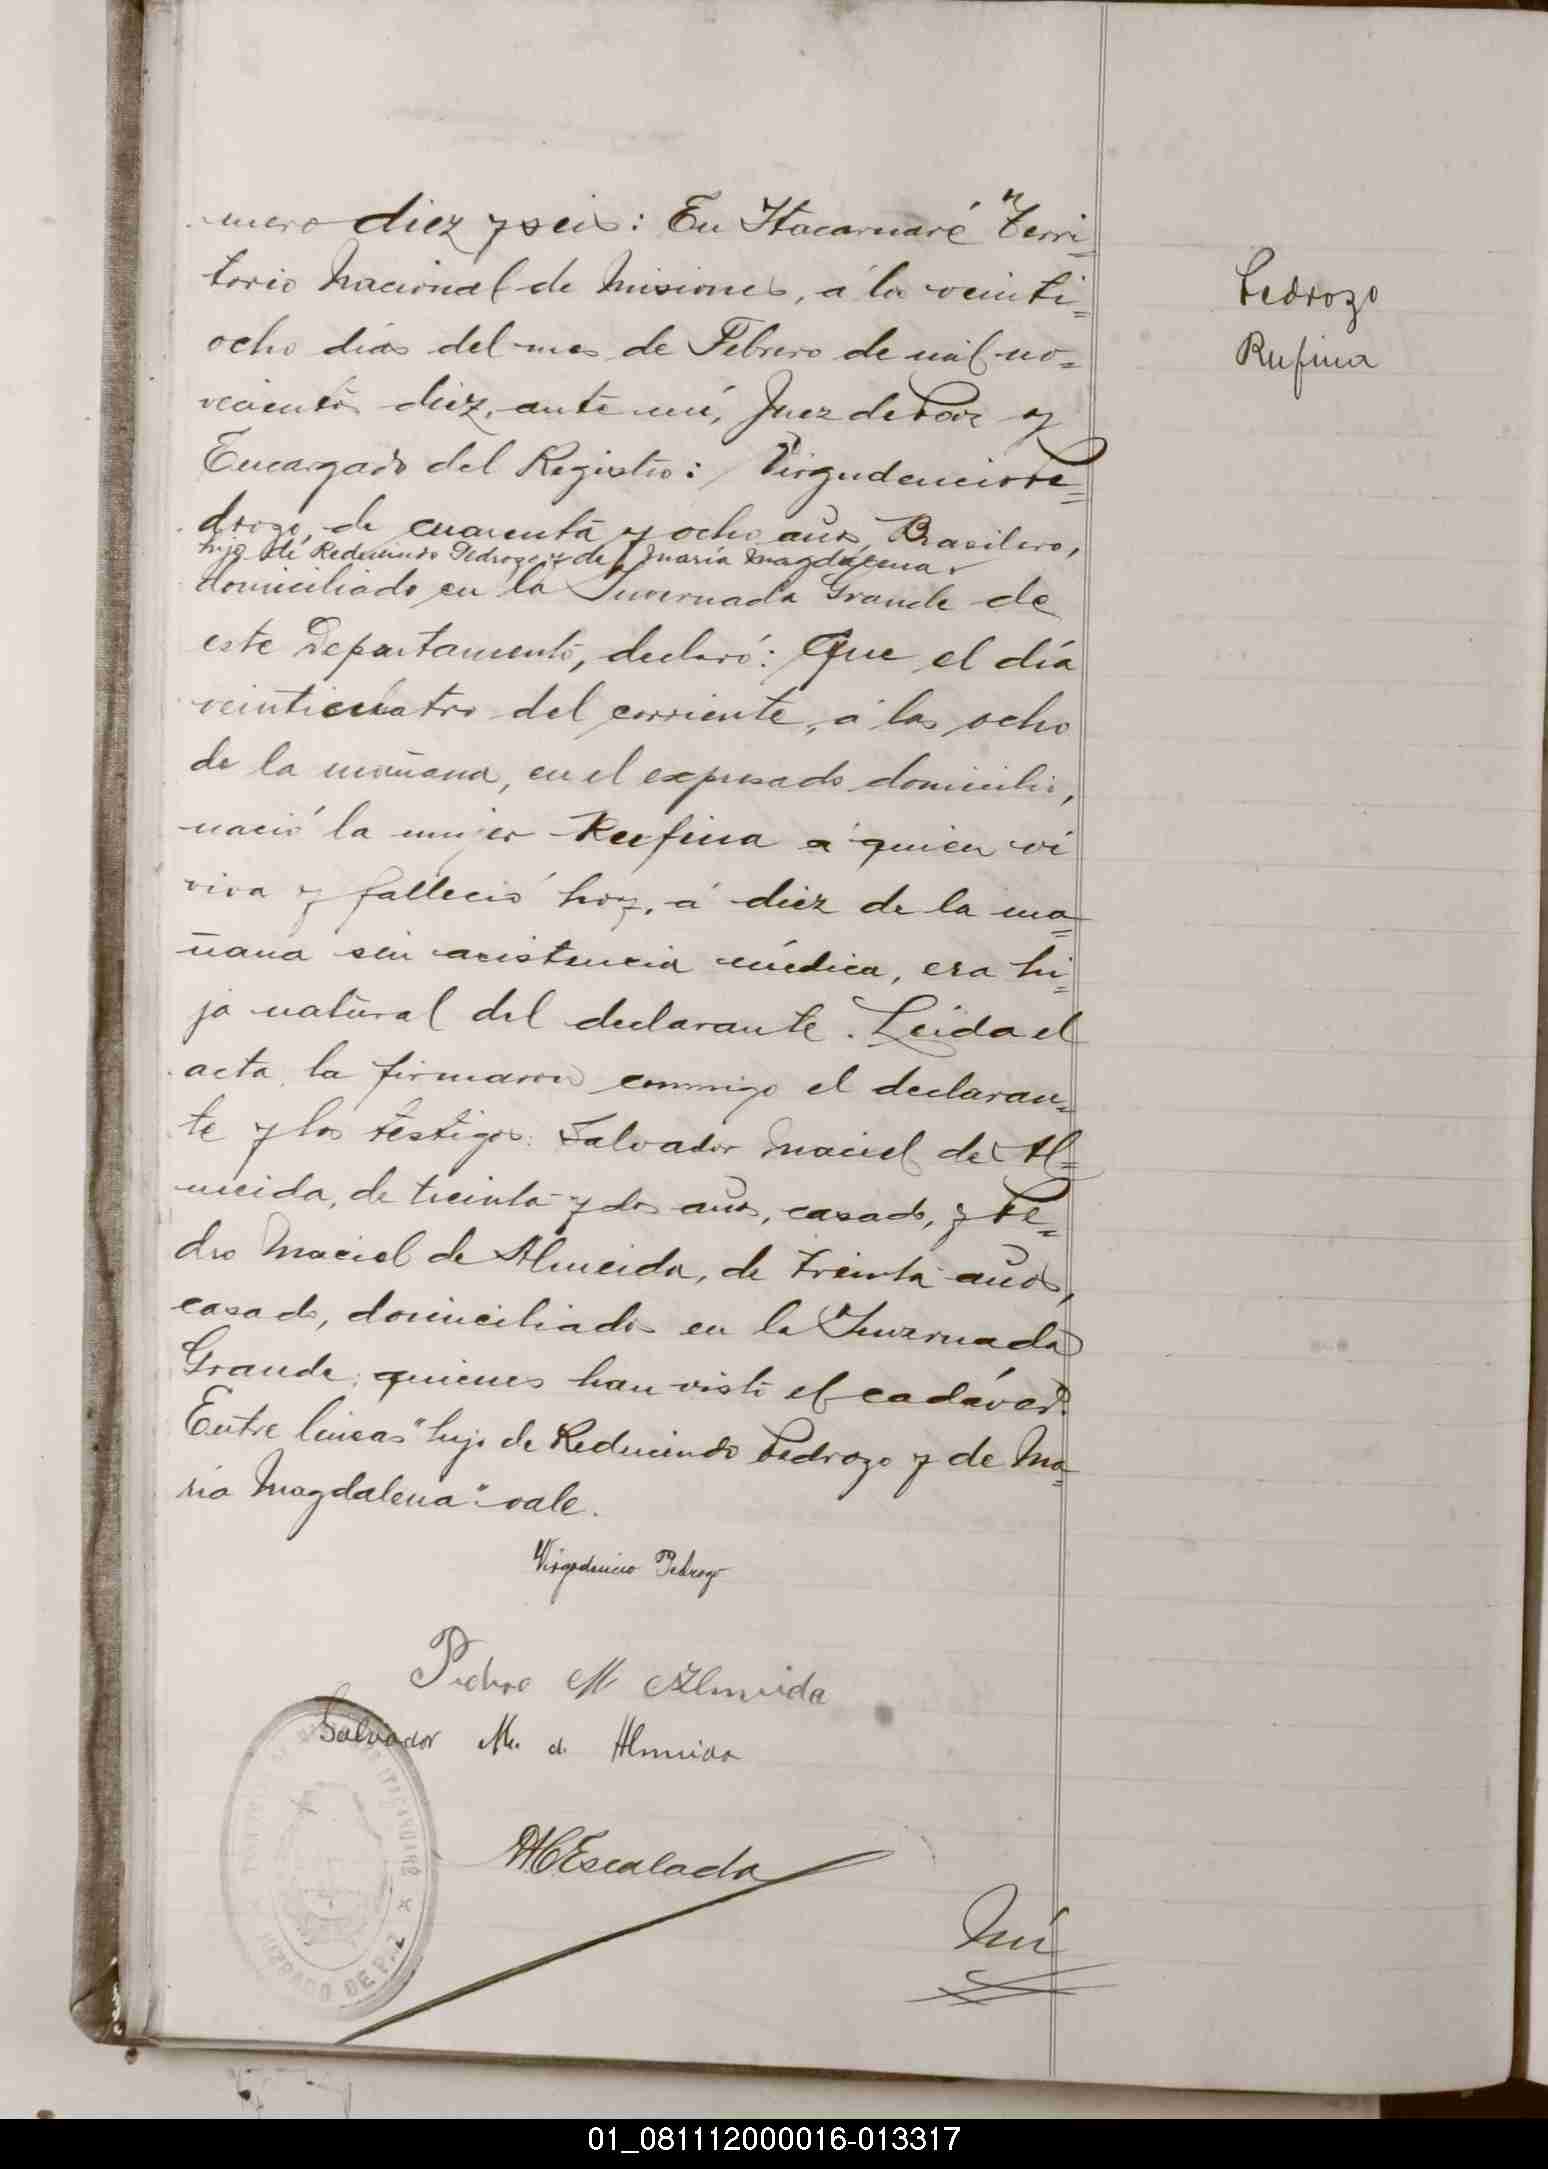 mero diez y seis: En Itacaruaré Terri=
torio Nacional de Misiones, á los veinti=
ocho días del mes de Febrero de mil no=
vecientos diez, ante mí, Juez de Paz y
Encargado del Registro: Virgudencio Pe=
drozo, de cuarenta y ocho años, Brasilero,
hijo de Reducindo Pedrozo y de María Magdalena
domiciliado en la Invernada Grande de
este Departamento, declaró: Que el día
veinticuatro del corriente, á las ocho
de la mañana, en el expresado domicilio,
nació la mujer Rufina á quien ví
viva y falleció hoy, á diez de la ma=
ñana sin asistencia médica, era hi=
ja natural del declarante. Leida el
acta la firmaron conmigo el declaran=
te y los testigos: Salvador Maciel de Al=
meida, de treinta y dos años, casado, y Pe=
dro Maciel de Almeida, de treinta años,
casado, domiciliados en la Invernada
Grande, quienes han visto el cadáver.
Entre lineas "hijo de Reducindo Pedrozo y de Ma=
ría Magdalena" vale.
Virgudencio Pedrozo
Pedro M Almeida
Salvador M. de Almeida
Escalada
Pedrozo
Rufina
ITACARUARÉ
JUZGADO DE PAZ
01_081112000016-013317